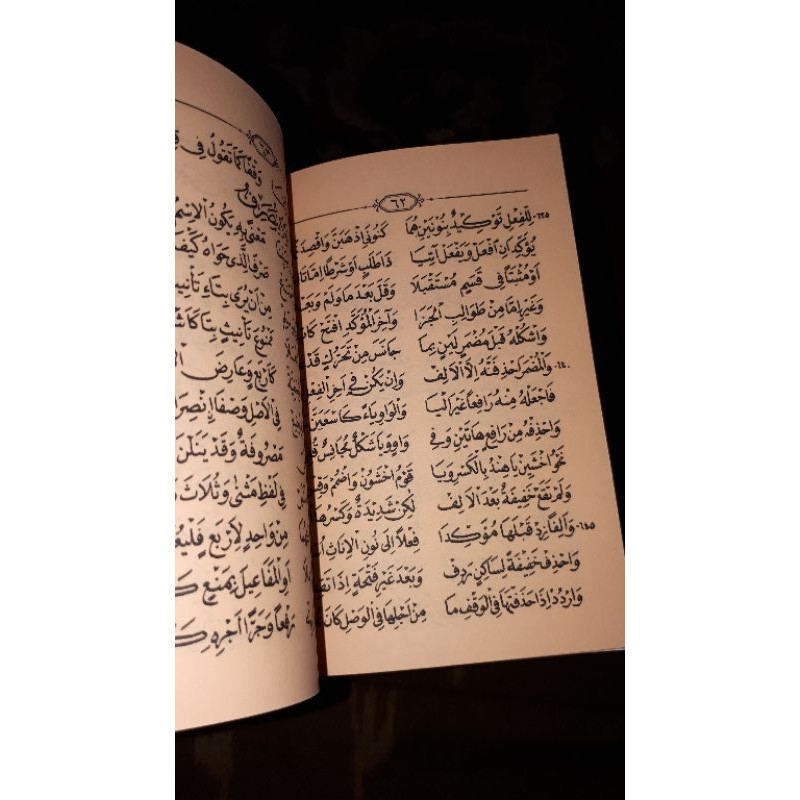 ٦٢
٦٣٥- لِلْفِعْلِ تَوْكِيدٌ بِنُونَيْنِ هُمَا كَنُونَيِ اذْهَبَنَّ وَاقْصِدَ
يُؤَكِّدَانِ افْعَلْ وَيَفْعَلْ آتِيَا ذَا طَلَبٍ اَوْ شَرْطًا اِمَّا تَا
اَوْ مُثْبَتًا فِي قَسَمٍ مُسْتَقْبَلَا وَقَلَّ بَعْدَ مَا وَلَمْ وَبَعْدَ
وَغَيْرِ اِمَّا مِنْ طَوَالِبِ الْجَزَا وَآخِرَ الْمُؤَكَّدِ افْتَحْ كَا
وَاشْكُلْهُ قَبْلَ مُضْمَرٍ لَيْنٍ بِمَا جَانَسَ مِنْ تَحَرُّكٍ قَدْ
٦٤٠- وَالْمُضْمَرَ احْذِفَنَّهُ اِلَّا الْاَلِفْ وَاِنْ يَكُنْ فِي آخِرِ الْفِعْلِ
فَاجْعَلْهُ مِنْهُ رَافِعًا غَيْرَ الْيَا وَالْوَاوِ يَاءً كَاسْعَيَنَّ
وَاحْذِفْهُ مِنْ رَافِعِ هَاتَيْنِ وَفِي وَاوٍ وَيَا شَكْلٌ مُجَانِسٌ
نَحْوُ اخْشَيِنْ يَاهِنْدُ بِالْكَسْرِ وَيَا قَوْمُ اخْشَوُنْ وَاضْمُمْ وَقِسْ
وَلَمْ تَقَعْ خَفِيفَةٌ بَعْدَ الْاَلِفْ لَكِنْ شَدِيدَةٌ وَكَسْرُهَا
٦٤٥- وَاَلِفًا زِدْ قَبْلَهَا مُؤَكِّدَا فِعْلًا اِلَى نُونِ الْاِنَاثِ
وَاحْذِفْ خَفِيفَةً لِسَاكِنٍ رَدِفْ وَبَعْدَ غَيْرِ فَتْحَةٍ اِذَا تَقِفْ
وَارْدُدْ اِذَا حَذَفْتَهَا فِي الْوَقْفِ مَا مِنْ اَجْلِهَا فِي الْوَصْلِ كَانَ
٦٣
وَقْفًا كَمَا تَقُولُ فِي
مَعْنًى بِهِ يَكُونُ الْاِسْمُ
صَرْفَ الَّذِي حَوَاهُ كَيْفَمَا
مِنْ اَنْ يُرَى بِتَاءِ تَأْنِيثٍ
مَمْنُوعَ تَأْنِيثٍ بِتَا كَاَشْهَلَا
كَاَرْبَعٍ وَعَارِضَ
فِي الْاَصْلِ وَصْفًا اِنْصِرَا
مَصْرُوفَةٌ وَقَدْ يَنَلْنَ
فِي لَفْظِ مَثْنَى وَثُلَاثَ
مِنْ وَاحِدٍ لِاَرْبَعٍ فَلْيُعْلَمَا
اَوِ الْمَفَاعِيلَ بِمَنْعٍ
رَفْعًا وَجَرًّا اَجْرِهِ